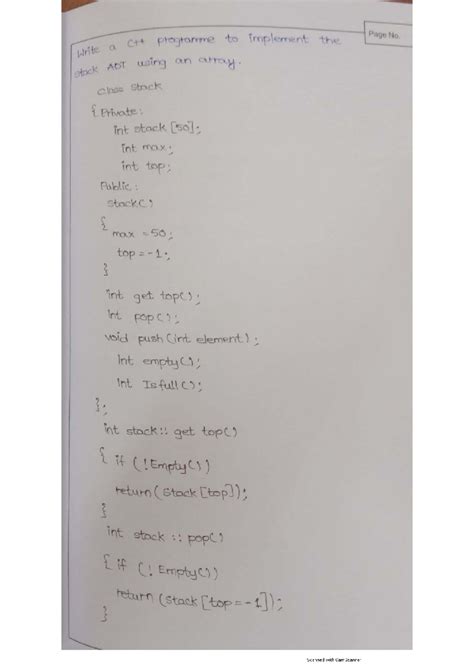 Page No.
Write a C++ programme to implement the
stack ADT using an array.
class Stack
{ Private:
int stack [50];
int max;
int top;
Public:
stack()
{
max = 50;
top = -1;
}
int get top();
int pop();
void push(int element);
int empty();
int Isfull();
};
int stack :: get top()
{ if (!Empty())
return(stack[top]);
}
int stack :: pop()
{ if (! Empty())
return (stack[top=-1]);
}
Scanned with CamScanner